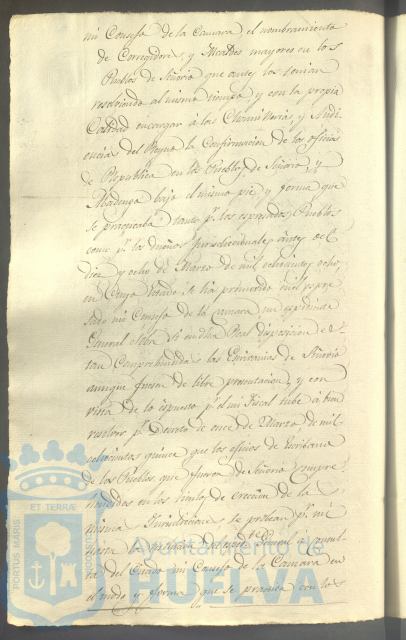 mi Consejo de la Camara el nombramiento
de Corregidores, y Alcaldes mayores en los
Pueblos de Señorio que antes los tenian
resolviendo al mismo tiempo, y con la propia
Calidad encargar á las Chancillerias, y Audi
encias del Reyno la Confirmacion de los oficios
de Republica en los Pueblos de Señorio, y
Abadengo bajo el mismo pie y forma que
se practicaba tanto pr. los expresados Pueblos
como pr. los dueños Jurisdiccionales antes del
diez y ocho de Marzo de mil ochocientos ocho,
en Cuyo estado se ha promovido en el expre
sado mi Consejo de la Camara un expediente
General sobre si en dha Real disposicion es-
tan Comprehendidas las Escribanias de Señorio
aunque fuesen de libre presentacion, y con
vista de lo expuesto pr. el mi Fiscal tube á bien
resolver pr. Decreto de once de Marzo de mil
ochocientos quince que los oficios de Escribano
de los Pueblos que fueron de Señorio
en los titulos de egresion de la
misma Jurisdiccion, se probean pr. mi
á consul
ta del Citado mi Consejo de la Camara en
el modo y forma que se practica con los
ET TERRÆ
PORTUS MARIS
CUSTODIA
Ayuntamiento de
HUELVA